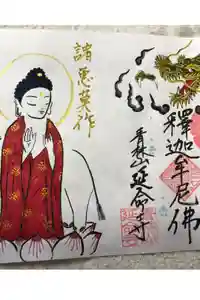 釋迦牟尼佛
山延命寺
諸悪莫作